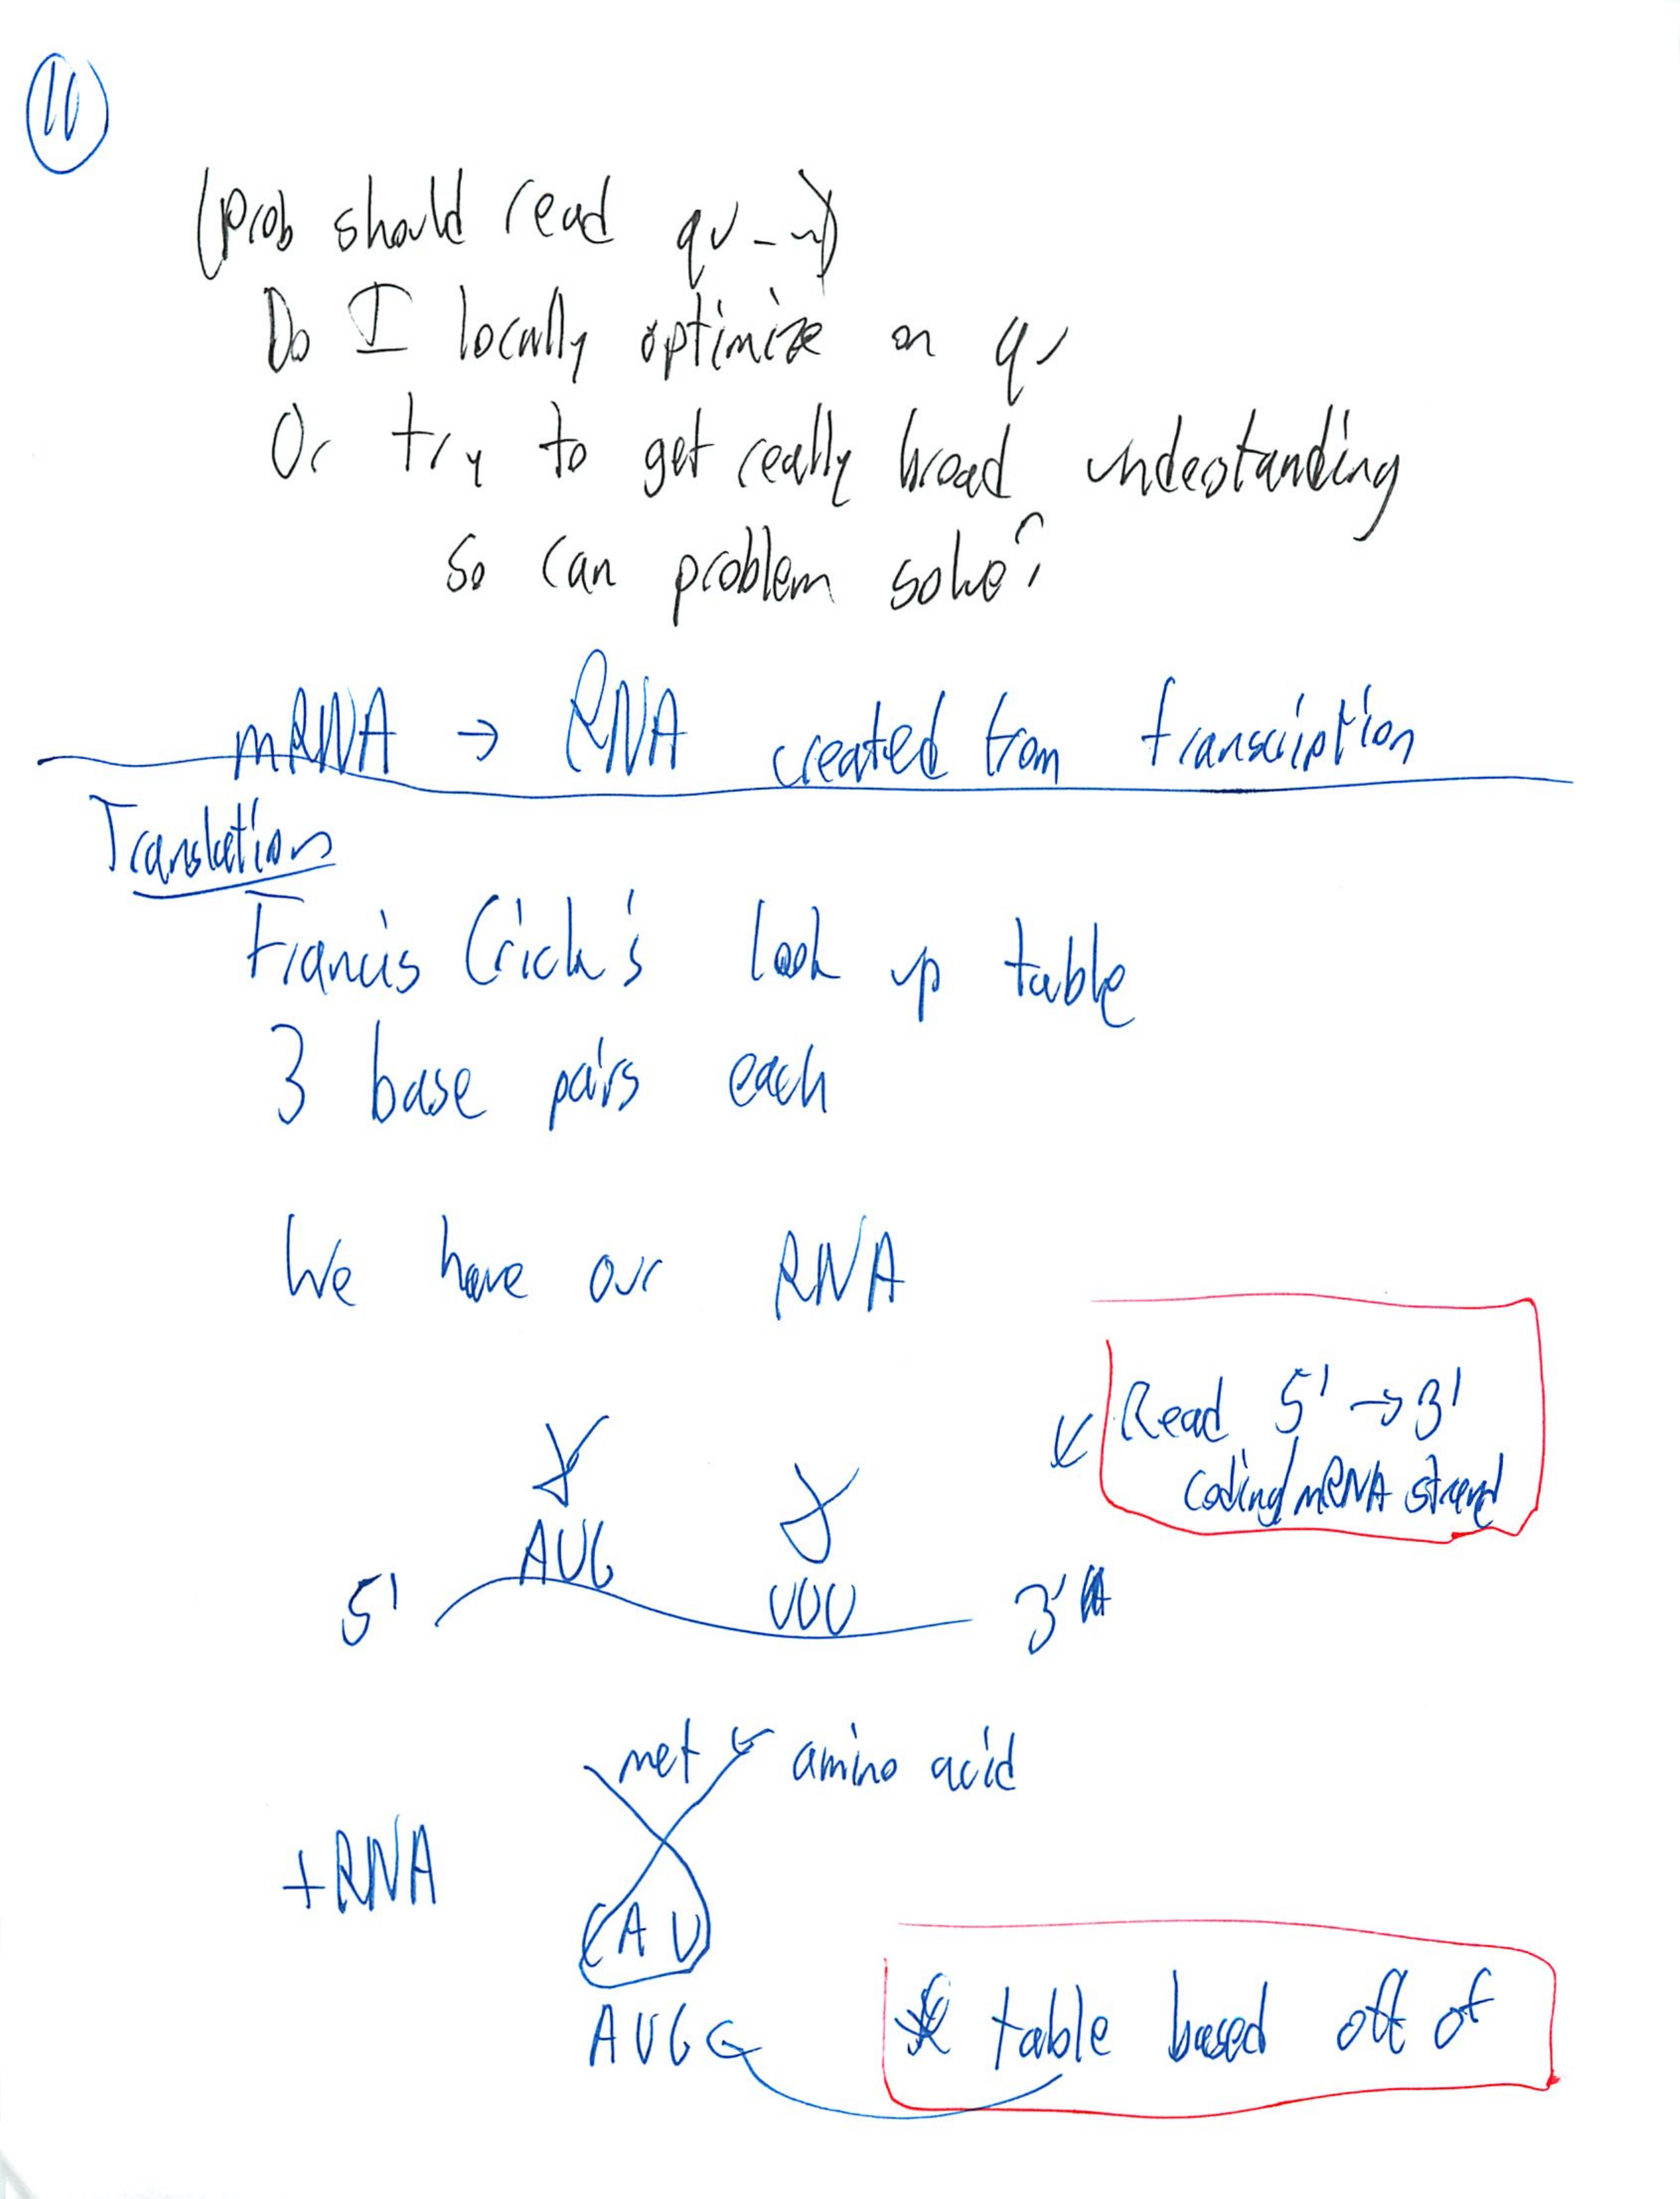 11
(Prob should read qu
Do I locally optimize on q,
Or try to get really broad understanding
so can problem solve?
mRNA → RNA created from transcription
Translation
Francis Crick's look up table
3 base pairs each
We have our RNA
Read 5' → 3'
coding mRNA strand
AUG
5' UUU 3'
met ← amino acid
tRNA
CAU
AUG ← * table based off of